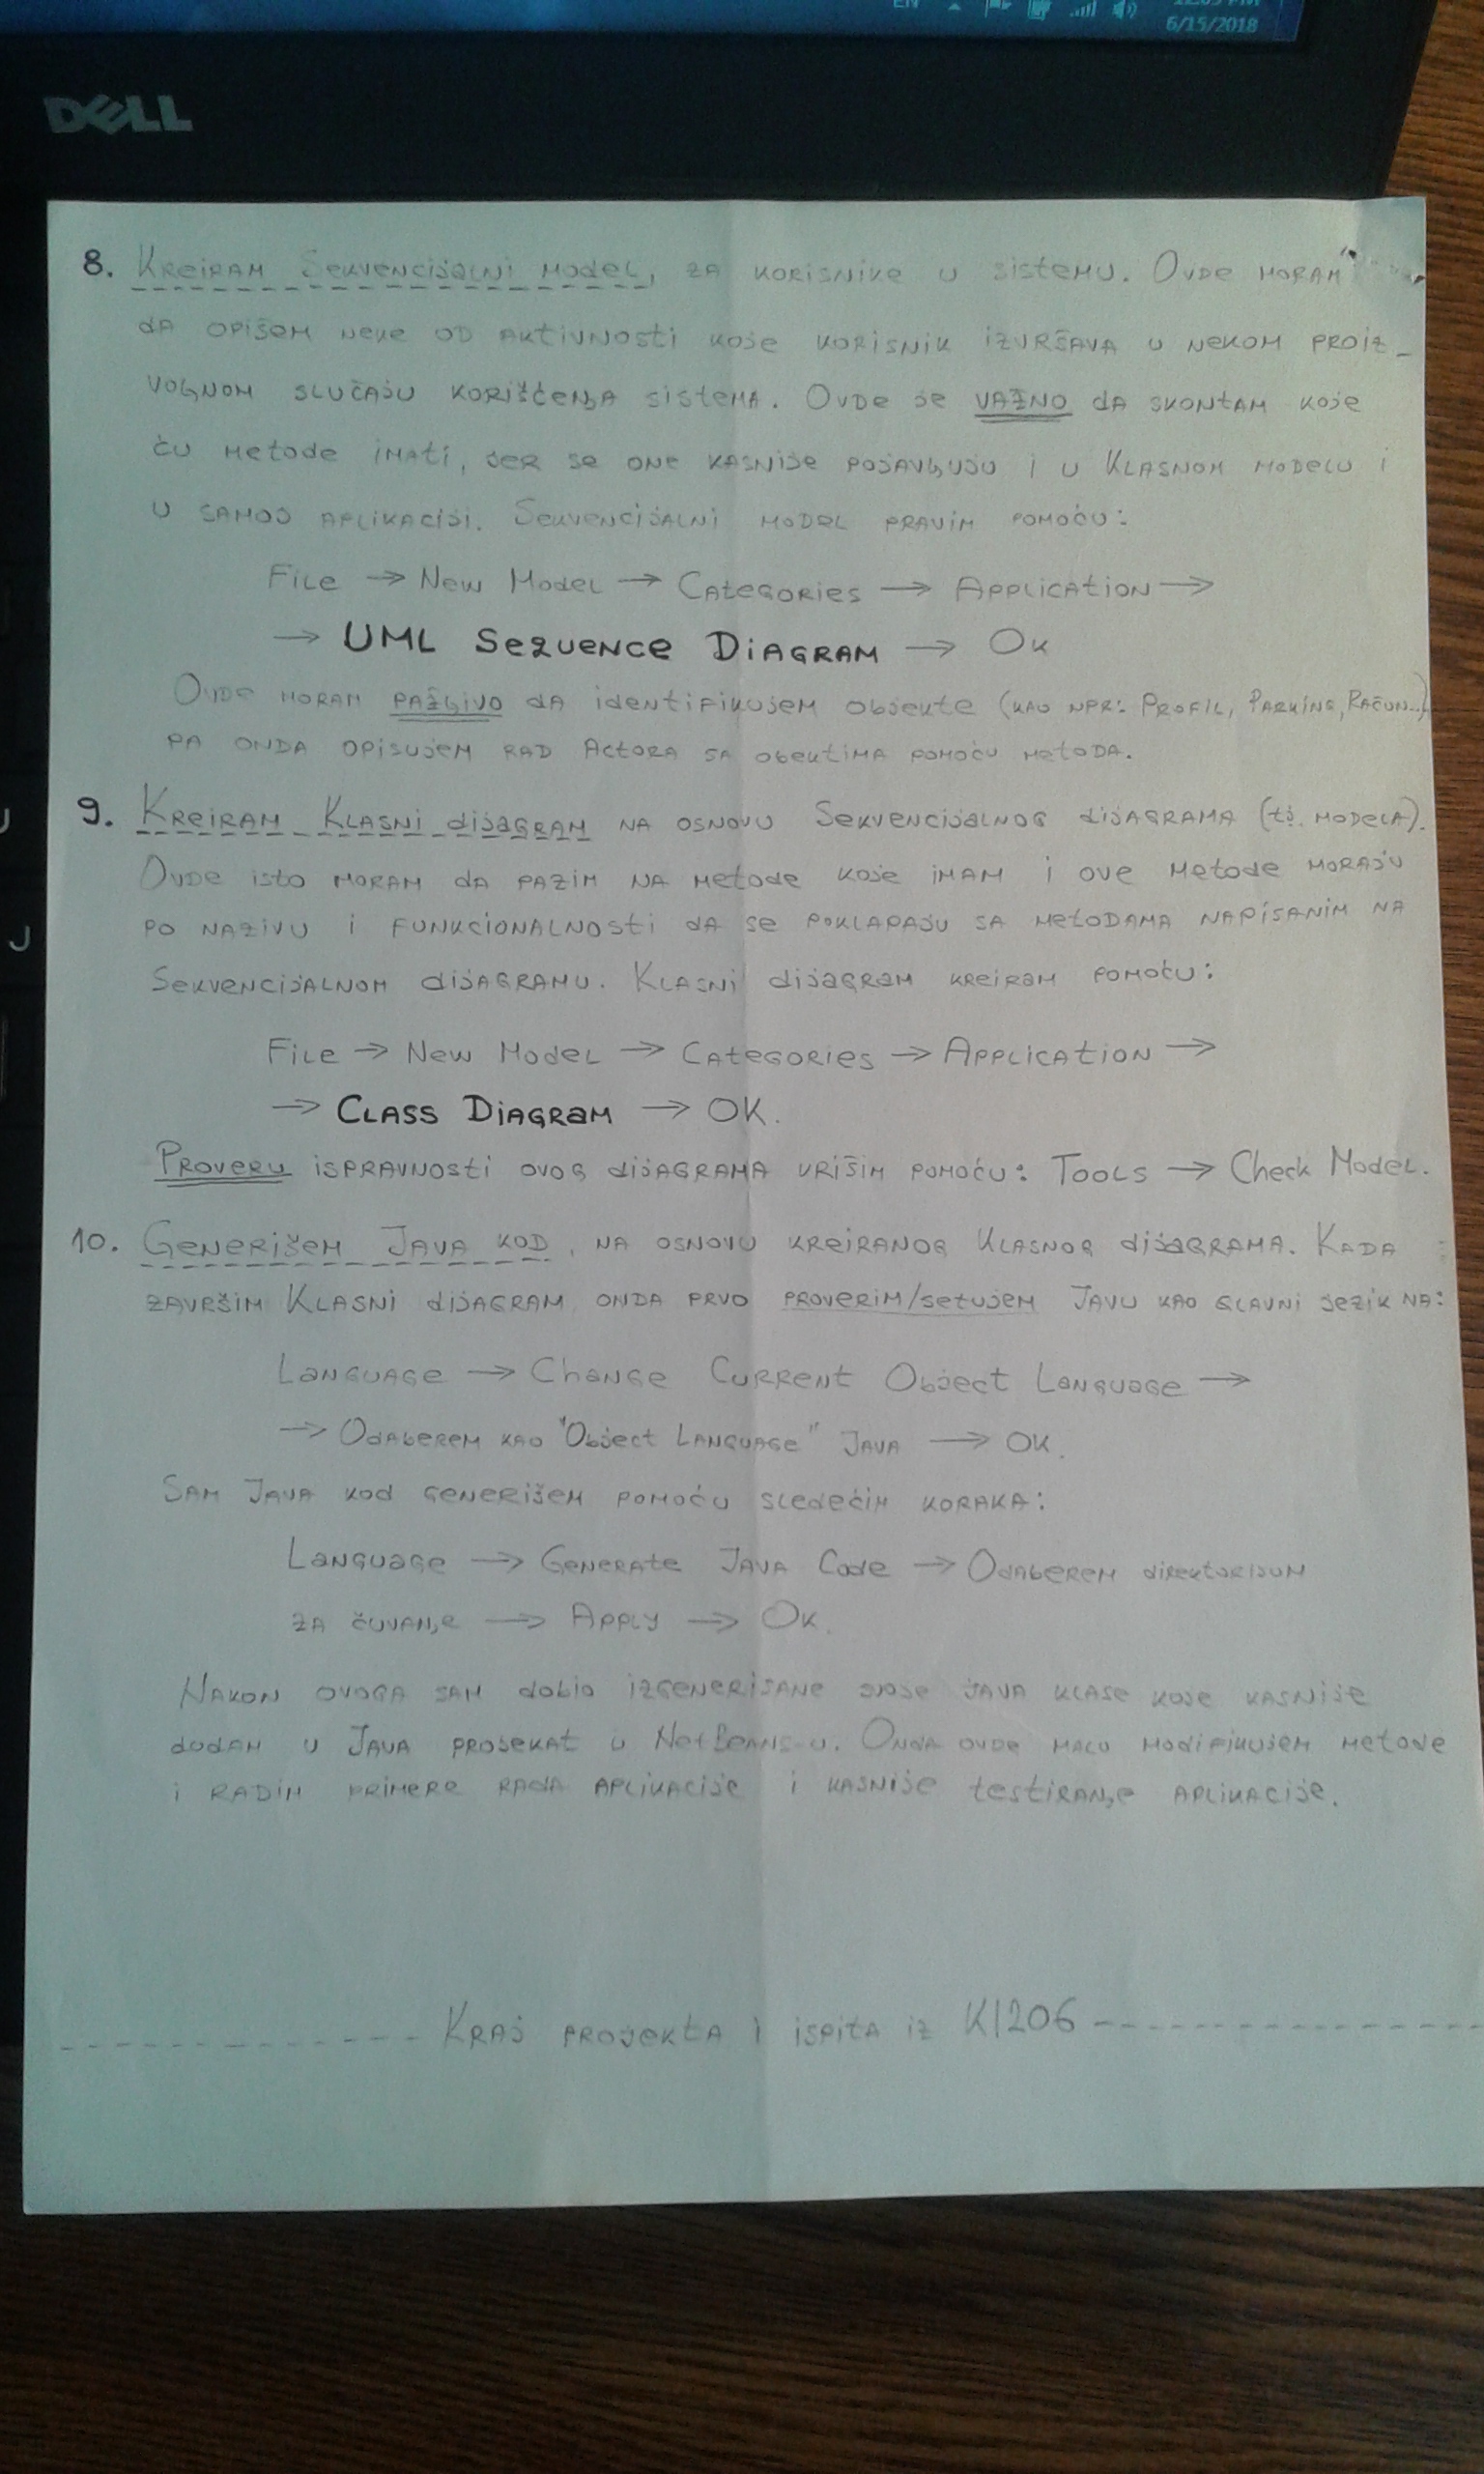 EN
6/15/2018
DELL
8. Kreiram Sekvencijalni model, za korisnike u sistemu. Ovde moram
da opišem neke od aktivnosti koje korisnik izvršava u nekom proiz-
voljnom slučaju korišćenja sistema. Ovde je važno da skontam koje
ću metode imati, jer se one kasnije pojavljuju i u Klasnom modelu i
u samoj aplikaciji. Sekvencijalni model pravim pomoću:
File → New Model → Categories → Application →
→ UML Sequence Diagram → Ok
Ovde moram pažljivo da identifikujem objekte (kao npr: Profil, Parking, Račun...)
pa onda opisujem rad Actora sa obektima pomoću metoda.
9. Kreiram Klasni dijagram na osnovu Sekvencijalnog dijagrama (tj. modela).
Ovde isto moram da pazim na metode koje imam i ove metode moraju
po nazivu i funkcionalnosti da se poklapaju sa metodama napisanim na
Sekvencijalnom dijagramu. Klasni dijagram kreiram pomoću:
File → New Model → Categories → Application →
→ Class Diagram → OK.
Proveru ispravnosti ovog dijagrama vrišim pomoću: Tools → Check Model.
10. Generišem Java kod, na osnovu kreiranog Klasnog dijagrama. Kada
završim Klasni dijagram onda prvo proverim/setujem Javu kao glavni jezik na:
Language → Change Current Object Language →
→ Odaberem kao "Object Language" Java → OK.
Sam Java kod generišem pomoću sledećih koraka:
Language → Generate Java Code → Odaberem direktorijum
za čuvanje → Apply → Ok.
Nakon ovoga sam dobio izgenerisane svoje Java klase koje kasnije
dodam u Java projekat u NetBeans-u. Onda ovde malo modifikujem metode
i radim primere rada aplikacije i kasnije testiranje aplikacije.
Kraj projekta i ispita iz KI206